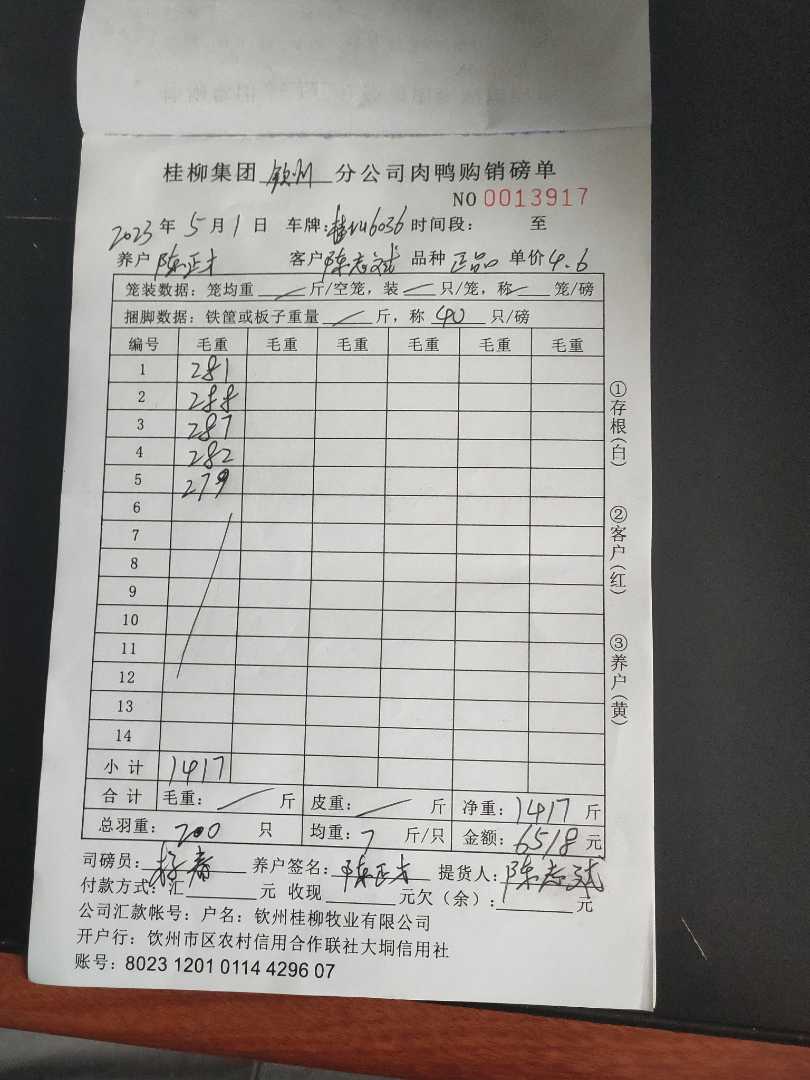 桂柳集团 钦州 分公司肉鸭购销磅单
NO 0013917
2023 年 5 月 1 日 车牌: 6036 时间段: 至
养户 陈正才 客户 陈志斌 品种 正品 单价 4.6
笼装数据: 笼均重 斤/空笼, 装 只/笼, 称 笼/磅
捆脚数据: 铁筐或板子重量 斤, 称 40 只/磅
编号 毛重 毛重 毛重 毛重 毛重 毛重
1 281
2 288
3 287
4 282
5 279
6
7
8
9
10
11
12
13
14
小计 1417
合计 毛重: 斤 皮重: 斤 净重: 1417 斤
总羽重: 200 只 均重: 7 斤/只 金额: 6518 元
①存根(白) ②客户(红) ③养户(黄)
司磅员: 养户签名: 陈正才 提货人: 陈志斌
付款方式: 汇 元 收现 元欠(余): 元
公司汇款帐号: 户名: 钦州桂柳牧业有限公司
开户行: 钦州市区农村信用合作联社大垌信用社
账号: 8023 1201 0114 4296 07